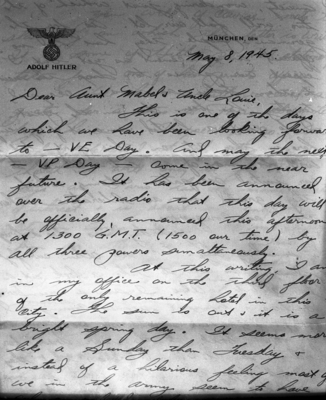 ADOLF HITLER
MÜNCHEN, DEN
May 8, 1945
Dear Aunt Mabel & Uncle Louie,
This is one of the days
which we have been looking forward
to - VE Day. And may the next
- VP Day - come in the near
future. It has been announced
over the radio that this day will
be officially announced this afternoon
at 1300 G.M.T. (1500 our time) by
all three powers simultaneously.
At this writing, I am
in my office on the third floor
of the only remaining hotel in this
city. The sun is out & it is a
bright spring day. It seems more
like a Sunday than Tuesday &
instead of a hilarious feeling most of
we in the army seem to have